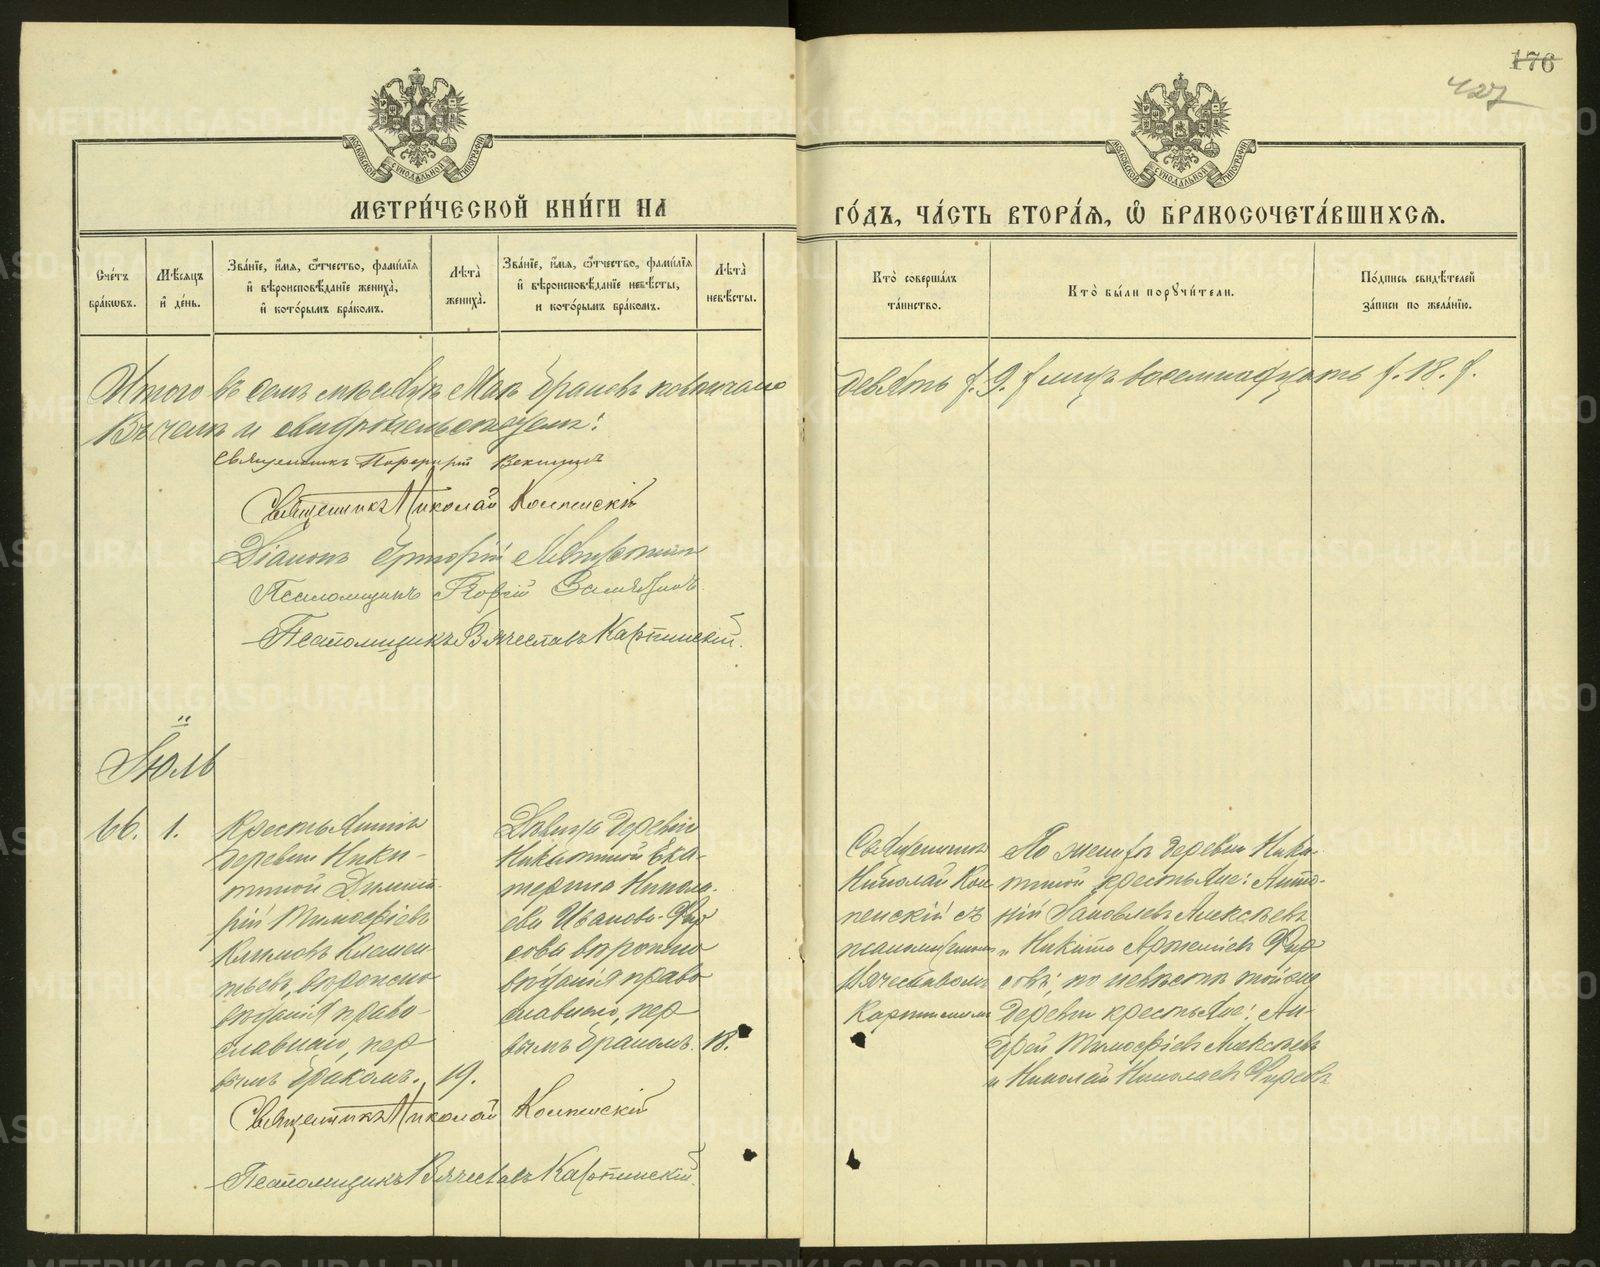 176
427
МОСКОВСКОЙ СѴНОДАЛЬНОЙ ТИПОГРАФІИ
МОСКОВСКОЙ СѴНОДАЛЬНОЙ ТИПОГРАФІИ
МЕТРИ́ЧЕСКОЙ КНИ́ГИ НА
ГО́ДЪ, ЧА́СТЬ ВТОРА́Я, Ѡ БРАКОСОЧЕТА́ВШИХСЯ.
Сче́тъ
бра́кѡвъ.
Мѣ́сяцъ
и҆ де́нь.
Зва́нїе, и҆́мя, ѻ҆́тчество, фами́лїя
и҆ вѣроисповѣ́данїе жениха̀,
и҆ кото́рымъ бра́комъ.
Лѣ́та̀
жениха̀.
Зва́нїе, и҆́мя, ѻ҆́тчество, фами́лїя
и҆ вѣроисповѣ́данїе невѣ́сты,
и кото́рымъ бра́комъ.
Лѣ́та̀
невѣ́сты.
Кто̀ соверша́лъ
та́инство.
Кто̀ бы́ли порꙋчи́тели.
По́дпись свидѣ́телей
за́писи по жела́нїю.
Итого въ семъ мѣсяцѣ Маѣ браковъ повѣнчано
девять /. 9. /
восемнадцать /. 18. /.
Въ чемъ и свидѣтельствуемъ:
Священникъ Порфирій
Священникъ Николай Конпескій
Діаконъ
Псаломщикъ
Псаломщикъ Вячеславъ Карпинскій.
Іюль
66. 1.
Крестьянинъ
деревни Ники-
тиной Димит-
рій Тимофіевъ
Климовъ Клемен-
тьевъ, вѣроиспо-
вѣданія право-
славнаго, пер-
вымъ бракомъ. 19.
Дѣвица деревни
Никитиной Ека-
терина Никола-
ева Иванова-Фир-
сова вѣроиспо
вѣданія право
славнаго, пер
вымъ бракомъ. 18.
Священникъ
Николай Кон-
пескій съ
псаломщикомъ
Вячеславомъ
Карпинскимъ
По женихѣ деревни Ники-
тиной крестьяне: Анто-
ній Яковлевъ Алексѣевъ
и Никита Фир
совъ; по невѣстѣ той же
деревни крестьяне: Ан-
дрей Тимофіевъ Алексѣевъ
и Николай Николаевъ Фирсовъ
Священникъ Николай Конпескій
Псаломщикъ Вячеславъ Карпинскій.
METRIKI.GASO-URAL.RU